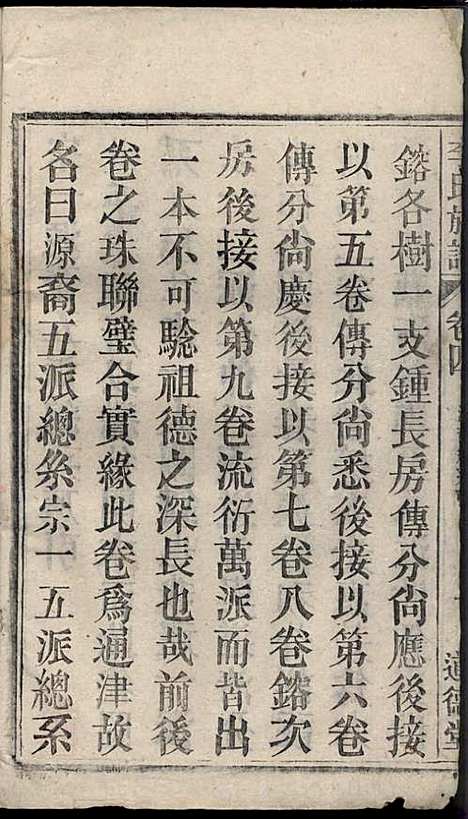 李氏族譜 卷四 道德堂
鎔各樹一支鍾長房傳分尙應後接
以第五卷傳分尙悉後接以第六卷
傳分尙慶後接以第七卷八卷鎔次
房後接以第九卷流衍萬派而皆出
一本不可騐祖德之深長也哉前後
卷之珠聯璧合實緣此卷爲通津故
名曰源裔五派總系宗一五派總系